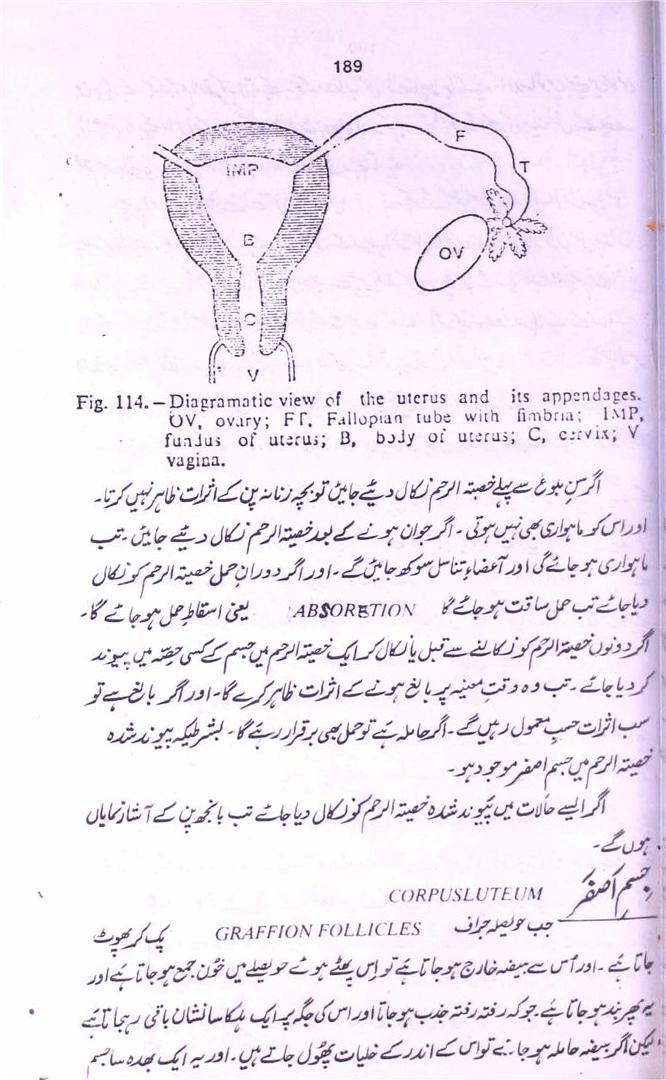 189
F
T
IMP
B
OV
C
V
Fig. 114.—Diagramatic view of the uterus and its appendages.
OV, ovary; FT, Fallopian tube with fimbria; IMP,
fundus of uterus; B, body of uterus; C, cervix; V
vagina.
اگر سنِ بلوغ سے پہلے خصیتہ الرحم نکال دیئے جایئں تو بچہ زنانہ پن کے اثرات ظاہر نہیں کرتا۔
اور اس کو ماہواری بھی نہیں ہوتی۔ اگر جوان ہونے کے بعد خصیتہ الرحم نکال دیئے جایئں۔ تب
ماہواری ہو جائے گی اور آعضاء تناسل سوکھ جایئں گے۔ اور اگر دورانِ حمل خصیتہ الرحم کو نکال
دیا جائے تب حمل ساقت ہو جائے گا ABSORETION یعنی اسقاطِ حمل ہو جائے گا۔
اگر دونوں خصیتہ الرحم کو نکالنے سے قبل یا نکال کر ایک خصیتہ الرحم میں جسم کے کسی حصّہ میں پیوند
کر دیا جائے۔ تب وہ وقتِ معینہ پر بالغ ہونے کے اثرات ظاہر کرے گا۔ اور اگر بالغ ہے تو
سب اثرات حسبِ معمول رہیں گے۔ اگر حاملہ ہے تو حمل بھی برقرار رہے گا۔ بشرطیکہ پیوند شدہ
خصیتہ الرحم میں جسم اصفر موجود ہو۔
اگر ایسے حالات میں پیوند شدہ خصیتہ الرحم کو نکال دیا جائے تب بانجھ پن کے آشار نمایاں
ہوں گے۔
جسم اصفر CORPUSLUTEUM
جب حویصلہ جراف GRAFFION FOLLICLES پک کر پھوٹ
جاتا ہے۔ اور اُس سے بیضہ خارج ہو جاتا ہے تو اِس پھٹے ہوئے حویصلے میں خون جمع ہو جاتا ہے اور
یہ پھر بند ہو جاتا ہے۔ جو کہ رفتہ رفتہ جذب ہو جاتا اور اس کی جگہ پر ایک ہلکا سا نشان باقی رہجاتا ہے
لیکن اگر بیضہ حاملہ ہو جائے تو اس کے اندر کے خلیات پھُول جاتے ہیں۔ اور یہ ایک بھدہ سا جسم